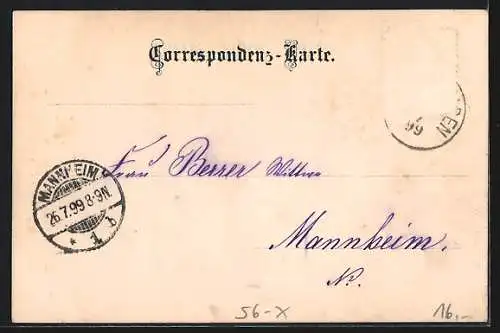 Correspondenz-Karte.
EN
99
MANNHEIM
26.7.99 8-9N
* 1 b
Frau Berrer Wittwe
Mannheim.
No.
56-X
16,-